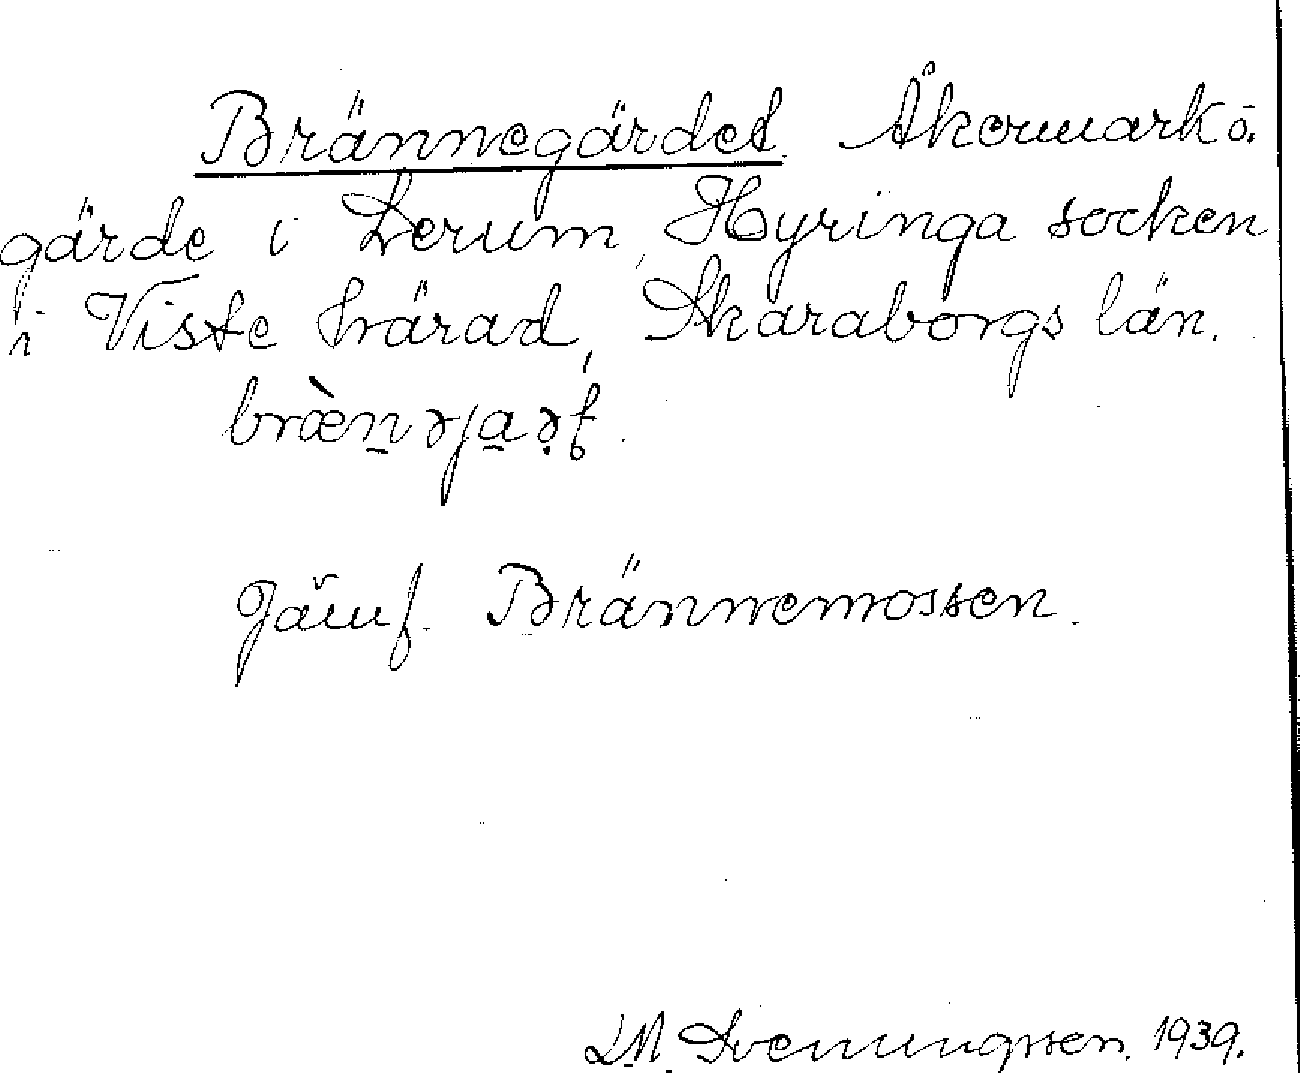 Brännegärdet. Åkermark o.
gärde i Lerum, Hyringa socken
i Viste härad, Skaraborgs län.
Jämf. Brännemossen.
L.M. Svenungsson. 1939.